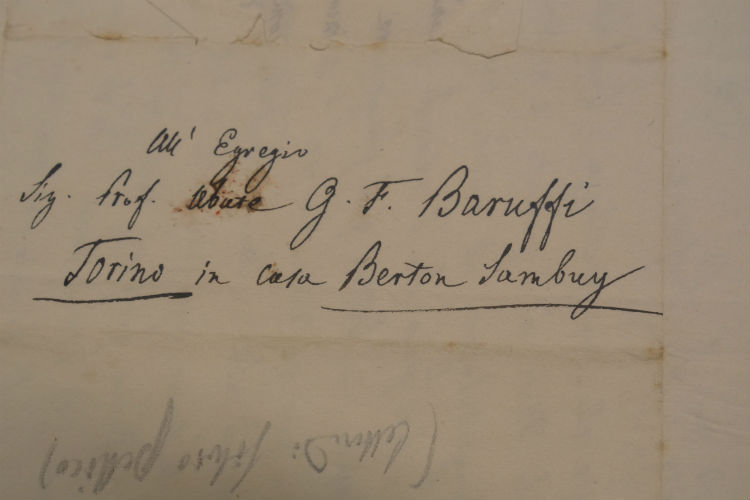 All' Egregio
Sig. Prof. Abate G. F. Baruffi
Torino in casa Berton Sambuy
(lettera di Silvio Pellico)